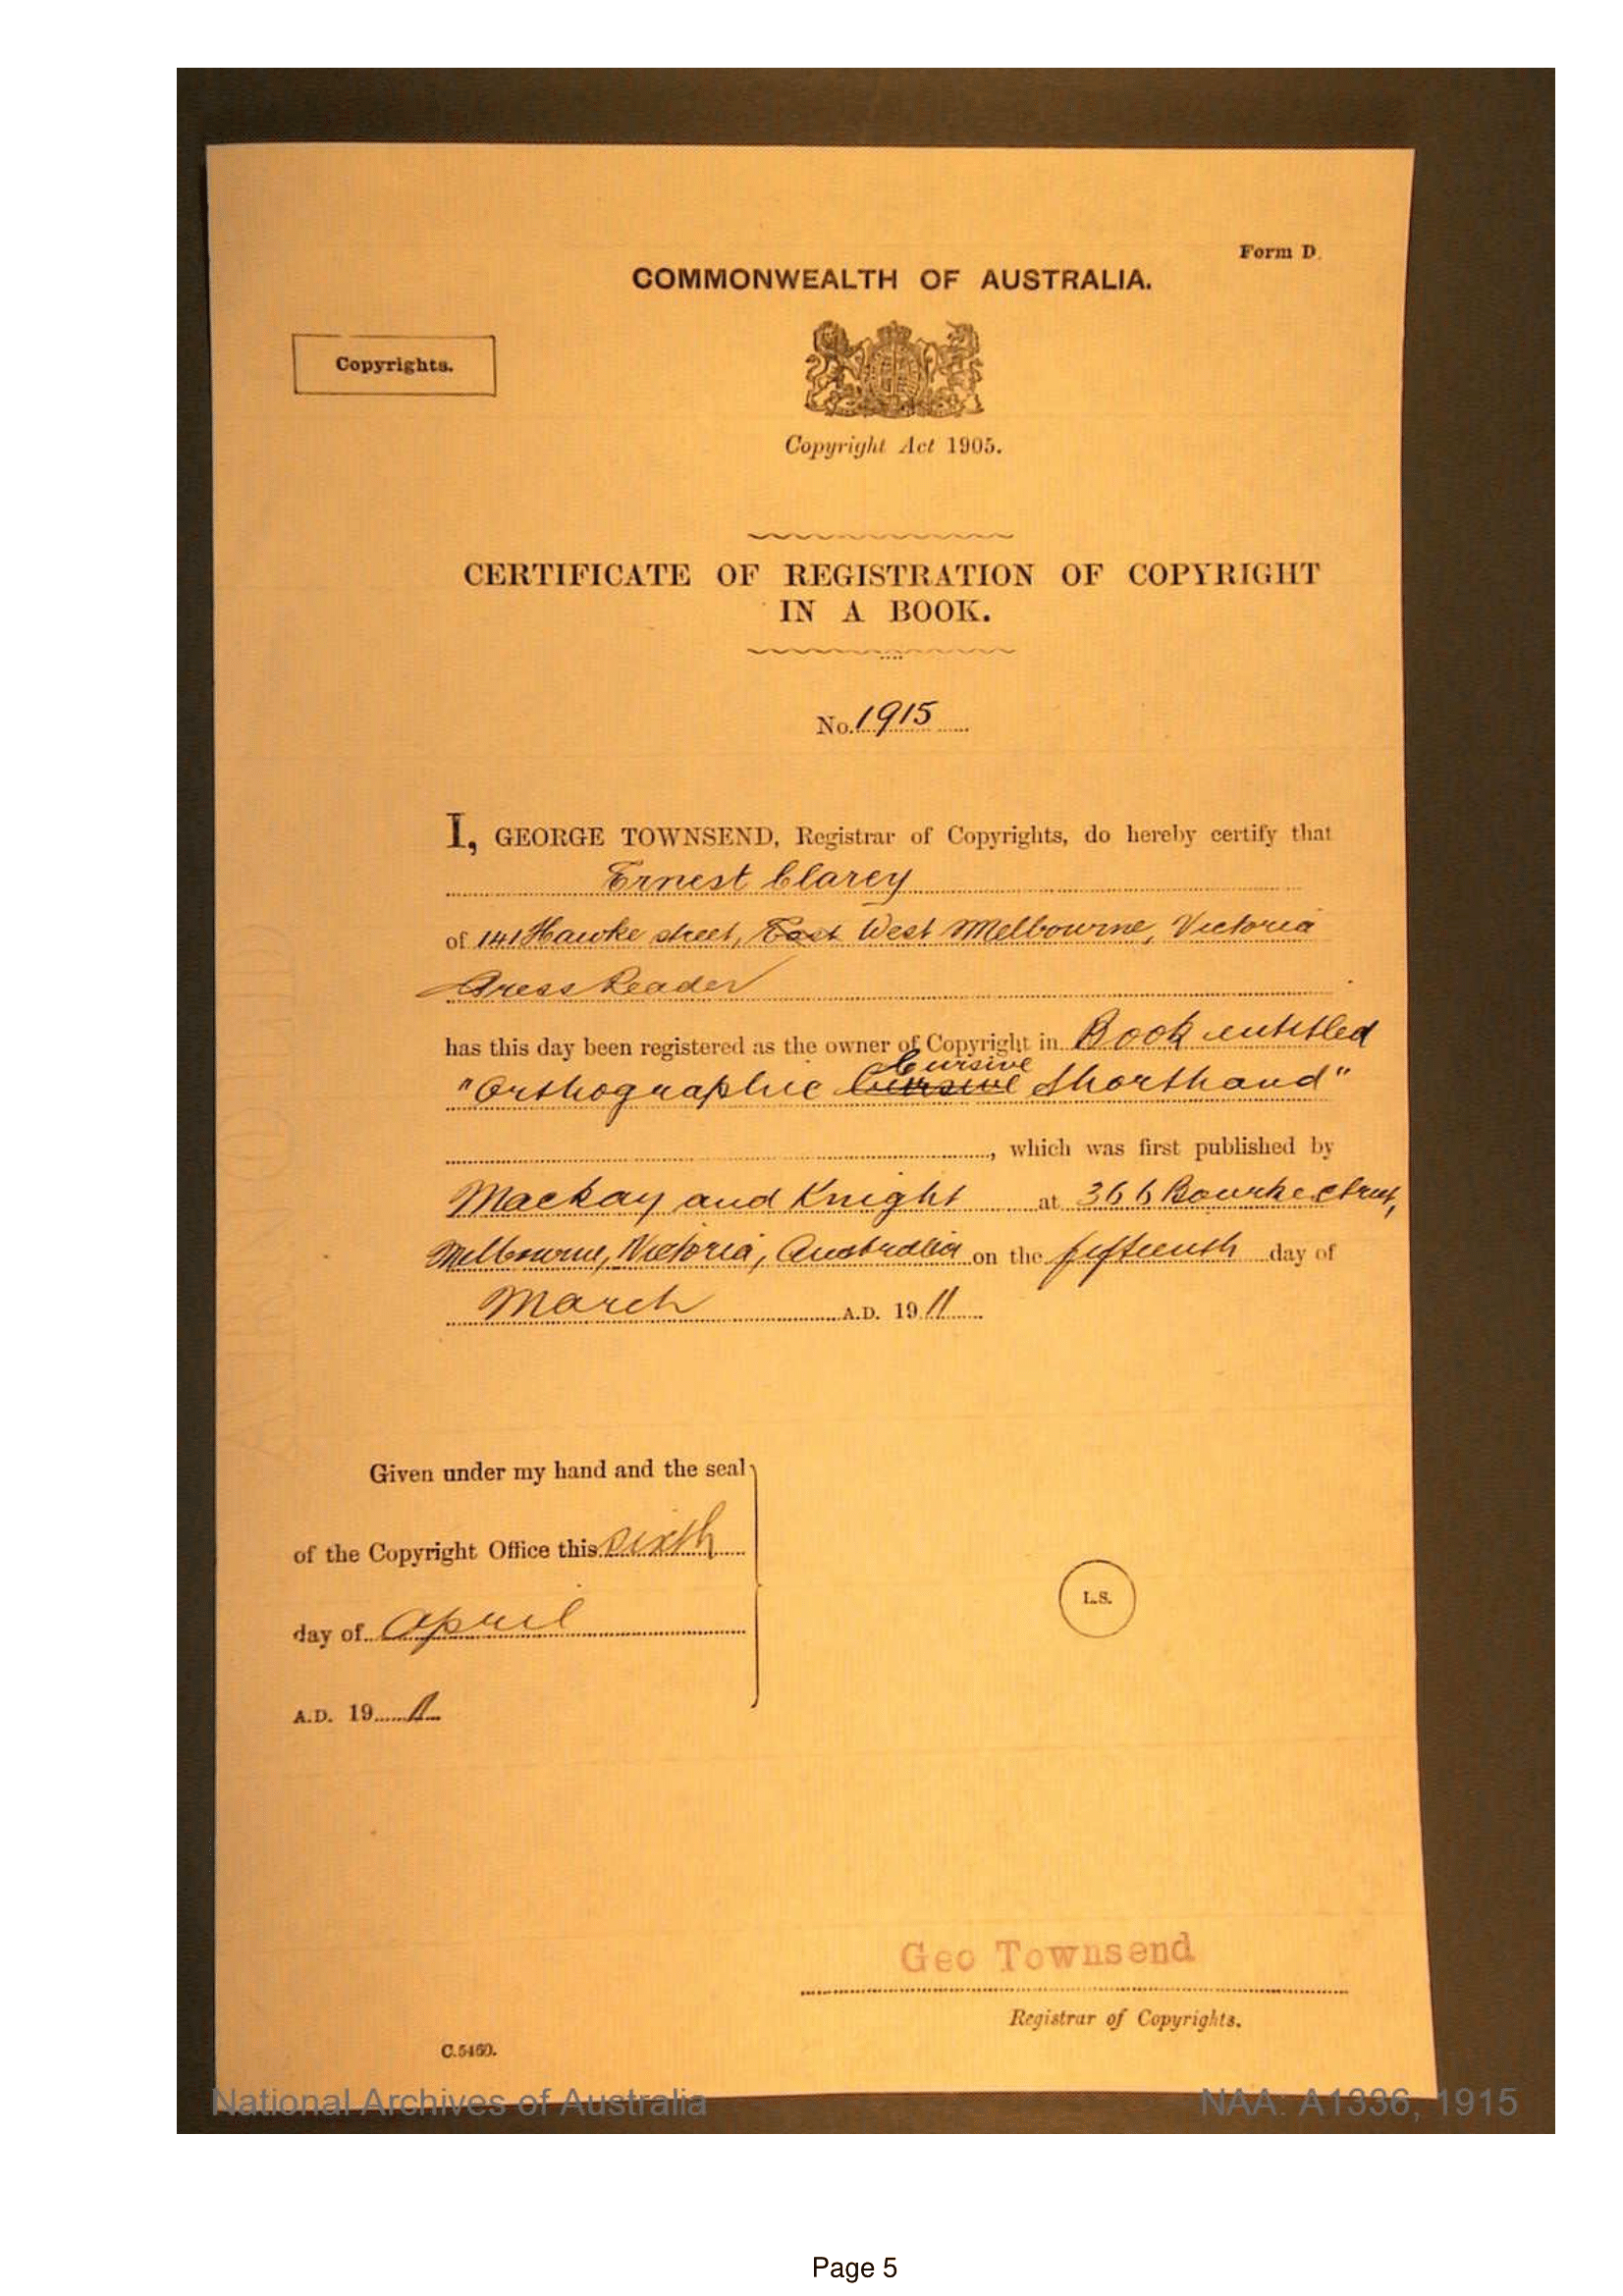 Form D.
COMMONWEALTH OF AUSTRALIA.
Copyrights.
Copyright Act 1905.
CERTIFICATE OF REGISTRATION OF COPYRIGHT
IN A BOOK.
No. 1915
I, GEORGE TOWNSEND, Registrar of Copyrights, do hereby certify that
Ernest Clarey
of 141 Hawke street, East West Melbourne, Victoria
Press Reader
has this day been registered as the owner of Copyright in Book entitled
Cursive
"Orthographic Cursive Shorthand"
, which was first published by
Mackay and Knight at 366 Bourke street,
Melbourne, Victoria, Australia on the fifteenth day of
March A.D. 1911
Given under my hand and the seal
of the Copyright Office this sixth
day of April
A.D. 19 11
L.S.
Geo Townsend
Registrar of Copyrights.
C.5460.
National Archives of Australia NAA: A1336, 1915
Page 5